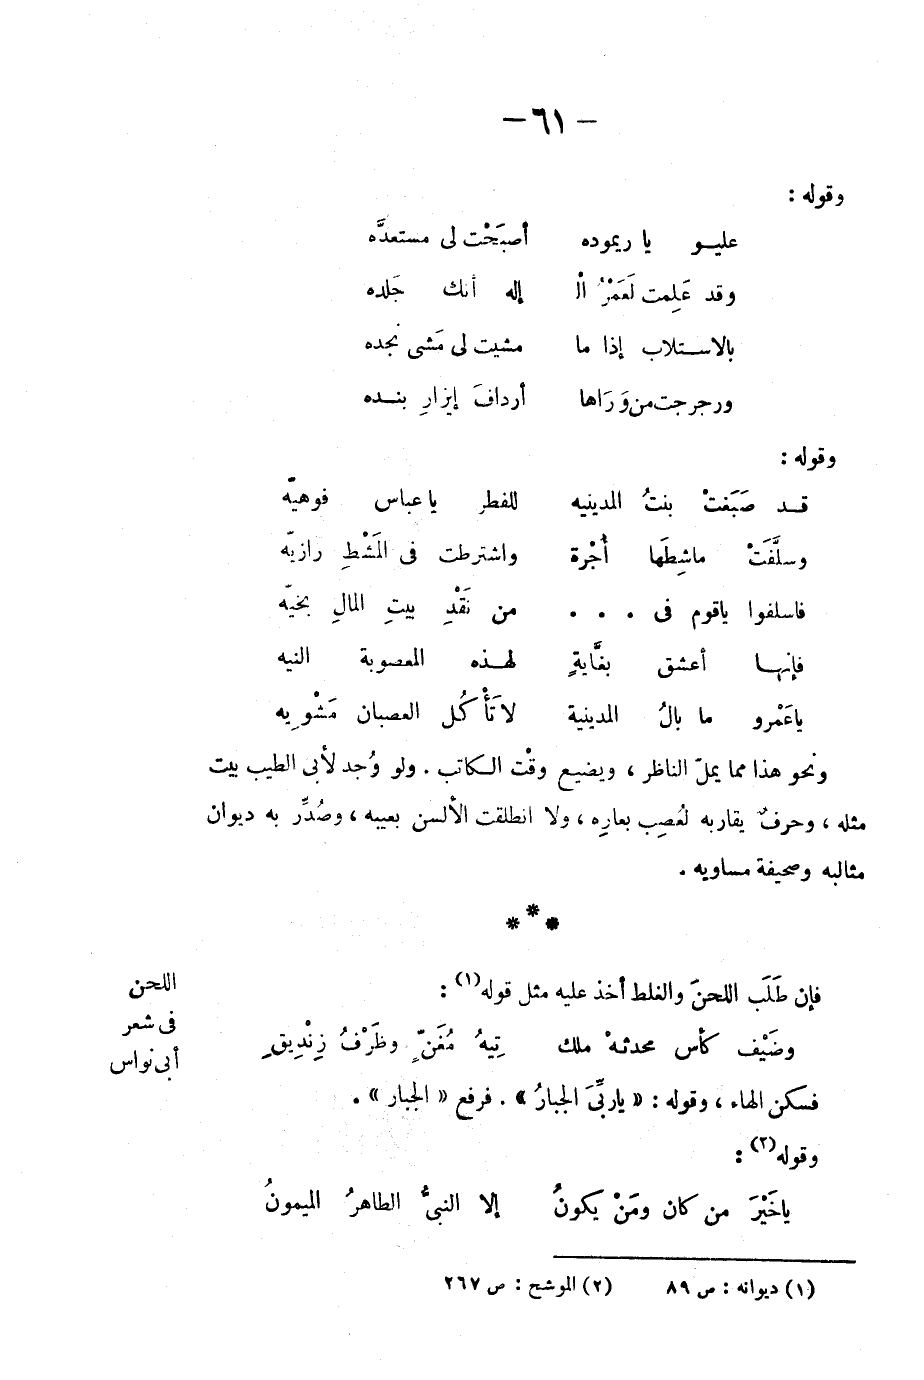 — ٦١ —
وقوله :
عليـو يا ريموده أصبَحْت لى مستعدَّه
وقد عَلِمت لَعَمْرُ الْ إله أنك جَلده
بالاستلاب إذا ما مشيت لى مَشى نجده
ورجرجت من وَرَاها أردافَ إيزارِ بنده
وقوله :
قـد صَبَغتْ بنتُ المدينيه للفطر يا عباس فوهيّه
وسلَّفَتْ ماشِطَها أُجْرة واشترطت فى المَشْطِ رازيّه
فاسلفوا ياقوم فى . . . من نَقْدِ بيتِ المالِ بخيّه
فإنها أعشق بغَّايةٍ لهذه المعصوبة النيه
ياعَمْرو ما بالُ المدينية لا تَأْكُل العصبان مَشْوِيه
ونحو هذا مما يملّ الناظر ، ويضيع وقْت الكاتب . ولو وُجد لأبى الطيب بيت
مثله ، وحرفٌ يقاربه لعُصِب بعارِه ، ولا انطلقت الألسن بعيبه ، وصُدِّر به ديوان
مثالبه وصحيفة مساويه .
***
فإن طَلَب اللحنَ والغلط أخذ عليه مثل قوله(١) :
اللحن
فى شعر
أبى نواس
وضَيْف كأس محدثهْ ملك تِيهُ مُغَنٍّ وظَرْفُ زِنْديقِ
فسكن الهاء ، وقوله : « ياربِّىَ الجبارُ » . فرفع « الجبار » .
وقوله(٢) :
ياخَيْرَ من كان ومَنْ يكونُ إلا النبىُّ الطاهرُ الميمونُ
(١) ديوانه : ص ٨٩ (٢) الموشح : ص ٢٦٧